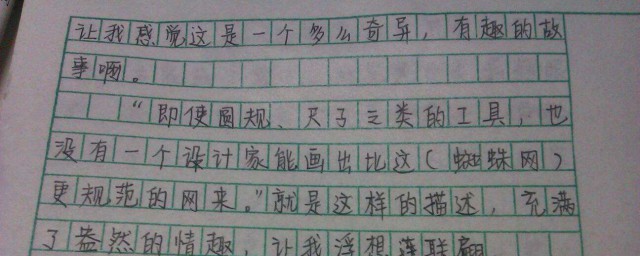 让我感觉这是一个多么奇异，有趣的故
事啊。
“即使圆规、尺子之类的工具，也
没有一个设计家能画出比这（蜘蛛网）
更规范的网来。”就是这样的描述，充满
了盎然的情趣，让我浮想连联翩